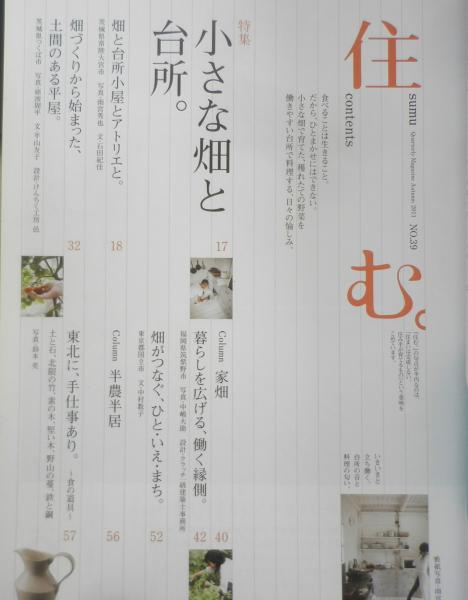 住む。
sumu
Quarterly Magazine Autumn 2011
NO.39
contents
いきいきと
立ち働く、
台所の音と
料理の匂い。
特集
小さな畑と
台所。
17
食べることは生きること。
だから、ひとまかせにはできない。
小さな畑で育てた、穫れたての野菜を
働きやすい台所で料理する、日々の愉しみ。
畑と台所小屋とアトリエと。
18
茨城県常陸大宮市 写真・雨宮秀也 文・石田紀佳
畑づくりから始まった、
土間のある平屋。
32
茨城県つくば市
Column 家畑
40
暮らしを広げる、働く縁側。
42
福岡県筑紫野市
畑がつなぐ、ひと・いえ・まち。
52
東京都国立市 文・中村数子
Column 半農半居
56
東北に、手仕事あり。
～食の道具～
57
土と石、北限の竹、素の木、堅い木、野山の蔓、鉄と鋼